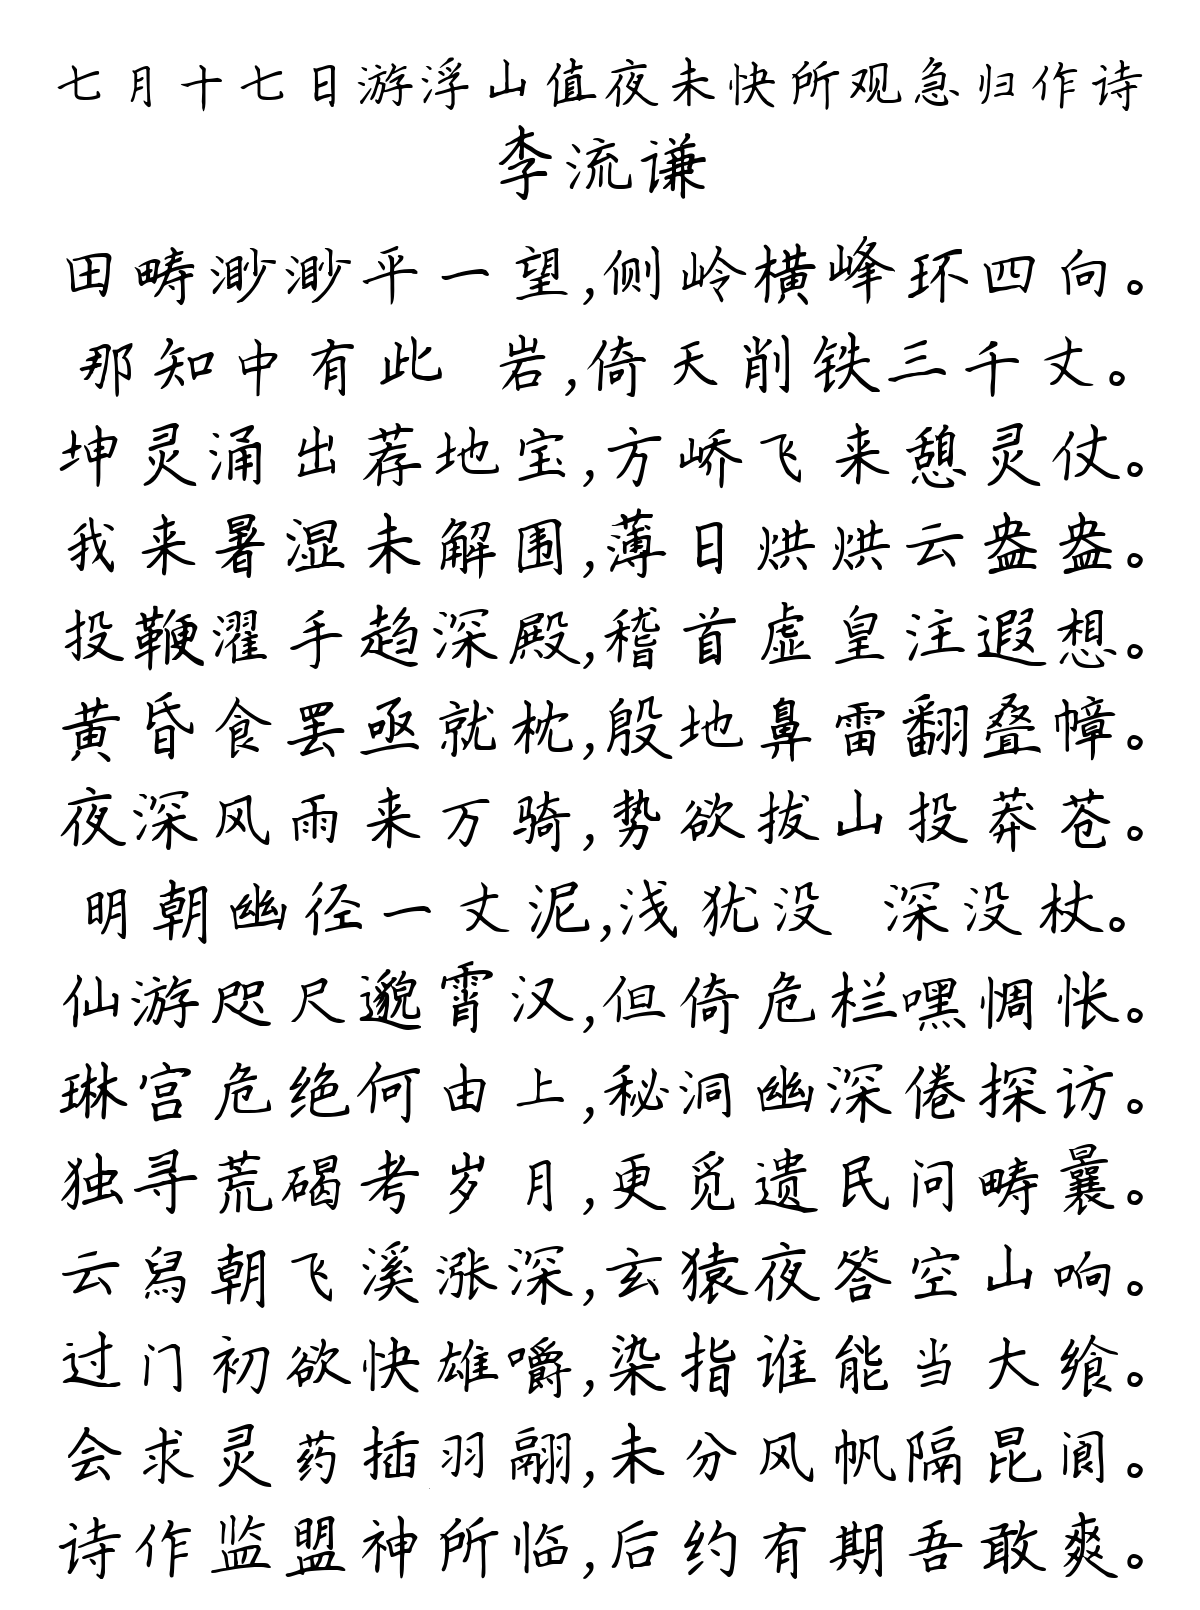 七月十七日游浮山值夜未快所观急归作诗
李流谦
田畴渺渺平一望,侧岭横峰环四向。
那知中有此 岩,倚天削铁三千丈。
坤灵涌出荐地宝,方峤飞来憩灵仗。
我来暑湿未解围,薄日烘烘云盎盎。
投鞭濯手趋深殿,稽首虚皇注遐想。
黄昏食罢亟就枕,殷地鼻雷翻叠幛。
夜深风雨来万骑,势欲拔山投莽苍。
明朝幽径一丈泥,浅犹没 深没杖。
仙游咫尺邈霄汉,但倚危栏嘿惆怅。
琳宫危绝何由上,秘洞幽深倦探访。
独寻荒碣考岁月,更觅遗民问畴曩。
云舄朝飞溪涨深,玄猿夜答空山响。
过门初欲快雄嚼,染指谁能当大飨。
会求灵药插羽翮,未分风帆隔昆阆。
诗作监盟神所临,后约有期吾敢爽。